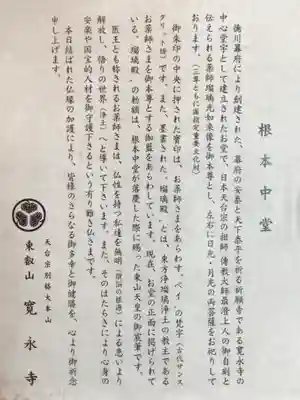 根本中堂
徳川幕府により創建された、幕府の安泰と天下泰平を祈る祈願寺である寛永寺の
中心堂宇として建立されたお堂で、日本天台宗の祖師 傳教大師最澄上人の御自刻と
伝えられる薬師瑠璃光如来像を御本尊とし、左右に日光・月光両菩薩をお祀りして
おります。(三尊ともに国指定重要文化財)
御朱印の中央に押された寶印は、お薬師さまをあらわす〝ベイ〟の梵字(古代サンス
クリット語)です。また、墨書された〝瑠璃殿〟とは、東方浄瑠璃浄土の教主である
お薬師さまを御本尊とする伽藍をあらわしています。現在、お堂の正面に掲げられて
いる〝瑠璃殿〟の勅額は、根本中堂が落慶した際に賜った東山天皇の御宸筆です。
医王とも称されるお薬師さまは、仏性を持つ私達を無明(煩悩の根源)による患いより
解放し、悟りの世界(浄土)へと導いて下さいます。また、そのはたらきにより心身の
安楽や国宝的人材を御守護下さるという有り難き仏さまです。
本日結ばれた仏縁の加護により、皆様のさらなる御多幸と御健勝を、心より御祈念
申し上げます。
天台宗別格大本山
東叡山 寛永寺